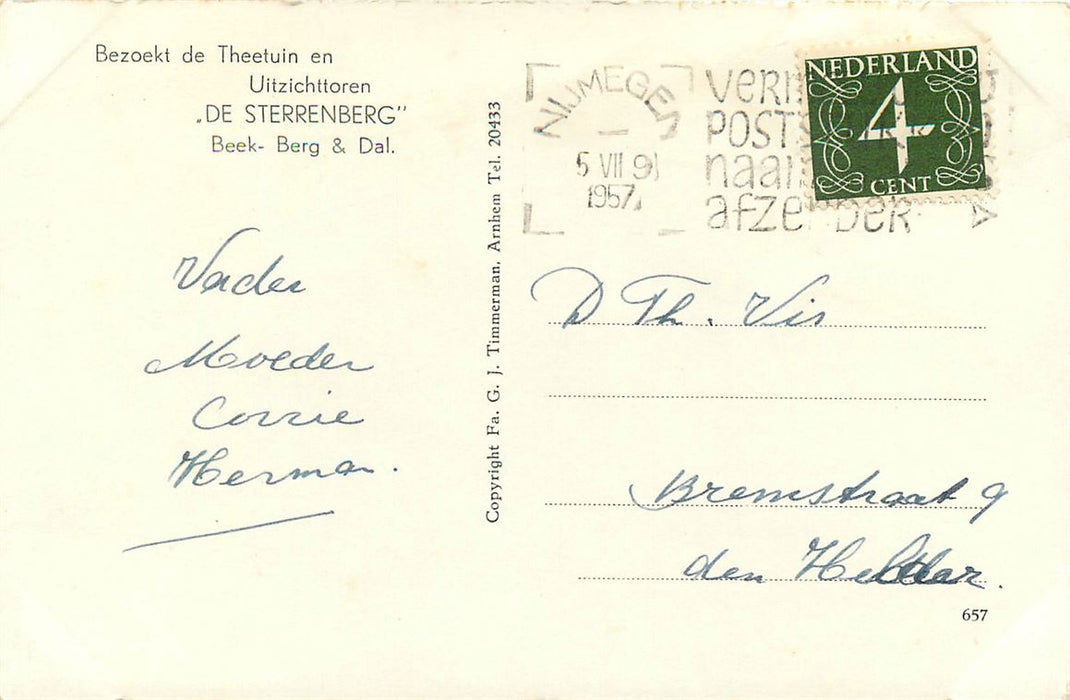 Bezoekt de Theetuin en
Uitzichttoren
„DE STERRENBERG"
Beek- Berg & Dal.
Vader
Moeder
Corrie
Herman.
Copyright Fa. G. J. Timmerman. Arnhem Tel. 20433
NIJMEGEN
5 VII 9
1957
POST
naar
NEDERLAND
4
CENT
D Th. Vis
Bremstraat 9
den Helder.
657